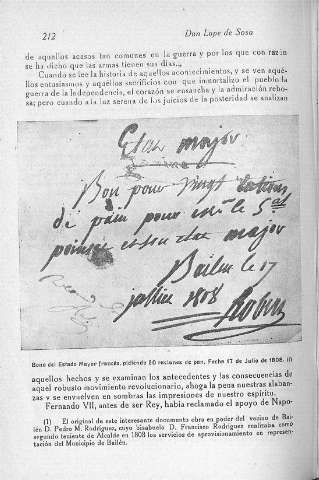 212
Don Lope de Sosa
de aquellos acasos tan comunes en la guerra y por los que con razón
se ha dicho que las armas tienen sus días..,
Cuando se lee la historia de aquellos acontecimientos, y se ven aqué-
llos entusiasmos y aquéllos sacrificios con que inmortalizó el pueblo la
guerra de la Independencia, el corazón se ensancha y la admiración rebo-
sa; pero cuando a la luz serena de los juicios de la posteridad se analizan
Etat major
Bon pour vingt rations
de pain pour le
major
Bailen le 17
juillet 1808
Bono del Estado Mayor francés, pidiendo 20 raciones de pan. Fecha 17 de Julio de 1808. (1)
aquellos hechos y se examinan los antecedentes y las consecuencias de
aquel robusto movimiento revolucionario, ahoga la pena nuestras alaban-
zas y se envuelven en sombras las impresiones de nuestro espíritu.
Fernando VII, antes de ser Rey, había reclamado el apoyo de Napo-
(1) El original de este interesante documento obra en poder del vecino de Bai-
lén D. Pedro M. Rodríguez, cuyo bisabuelo D. Francisco Rodríguez realizaba como
segundo teniente de Alcalde en 1808 los servicios de aprovisionamiento en represen-
tación del Municipio de Bailén.